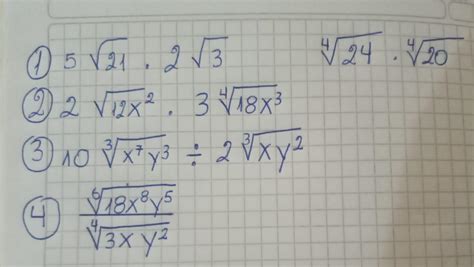 ① 5 √21 . 2 √3 ⁴√24 . ⁴√20
② 2 √12x² . 3 ⁴√18x³
③ 10 ³√x⁷y³ ÷ 2 ³√xy²
④ ⁶√18x⁸y⁵
⁴√3xy²